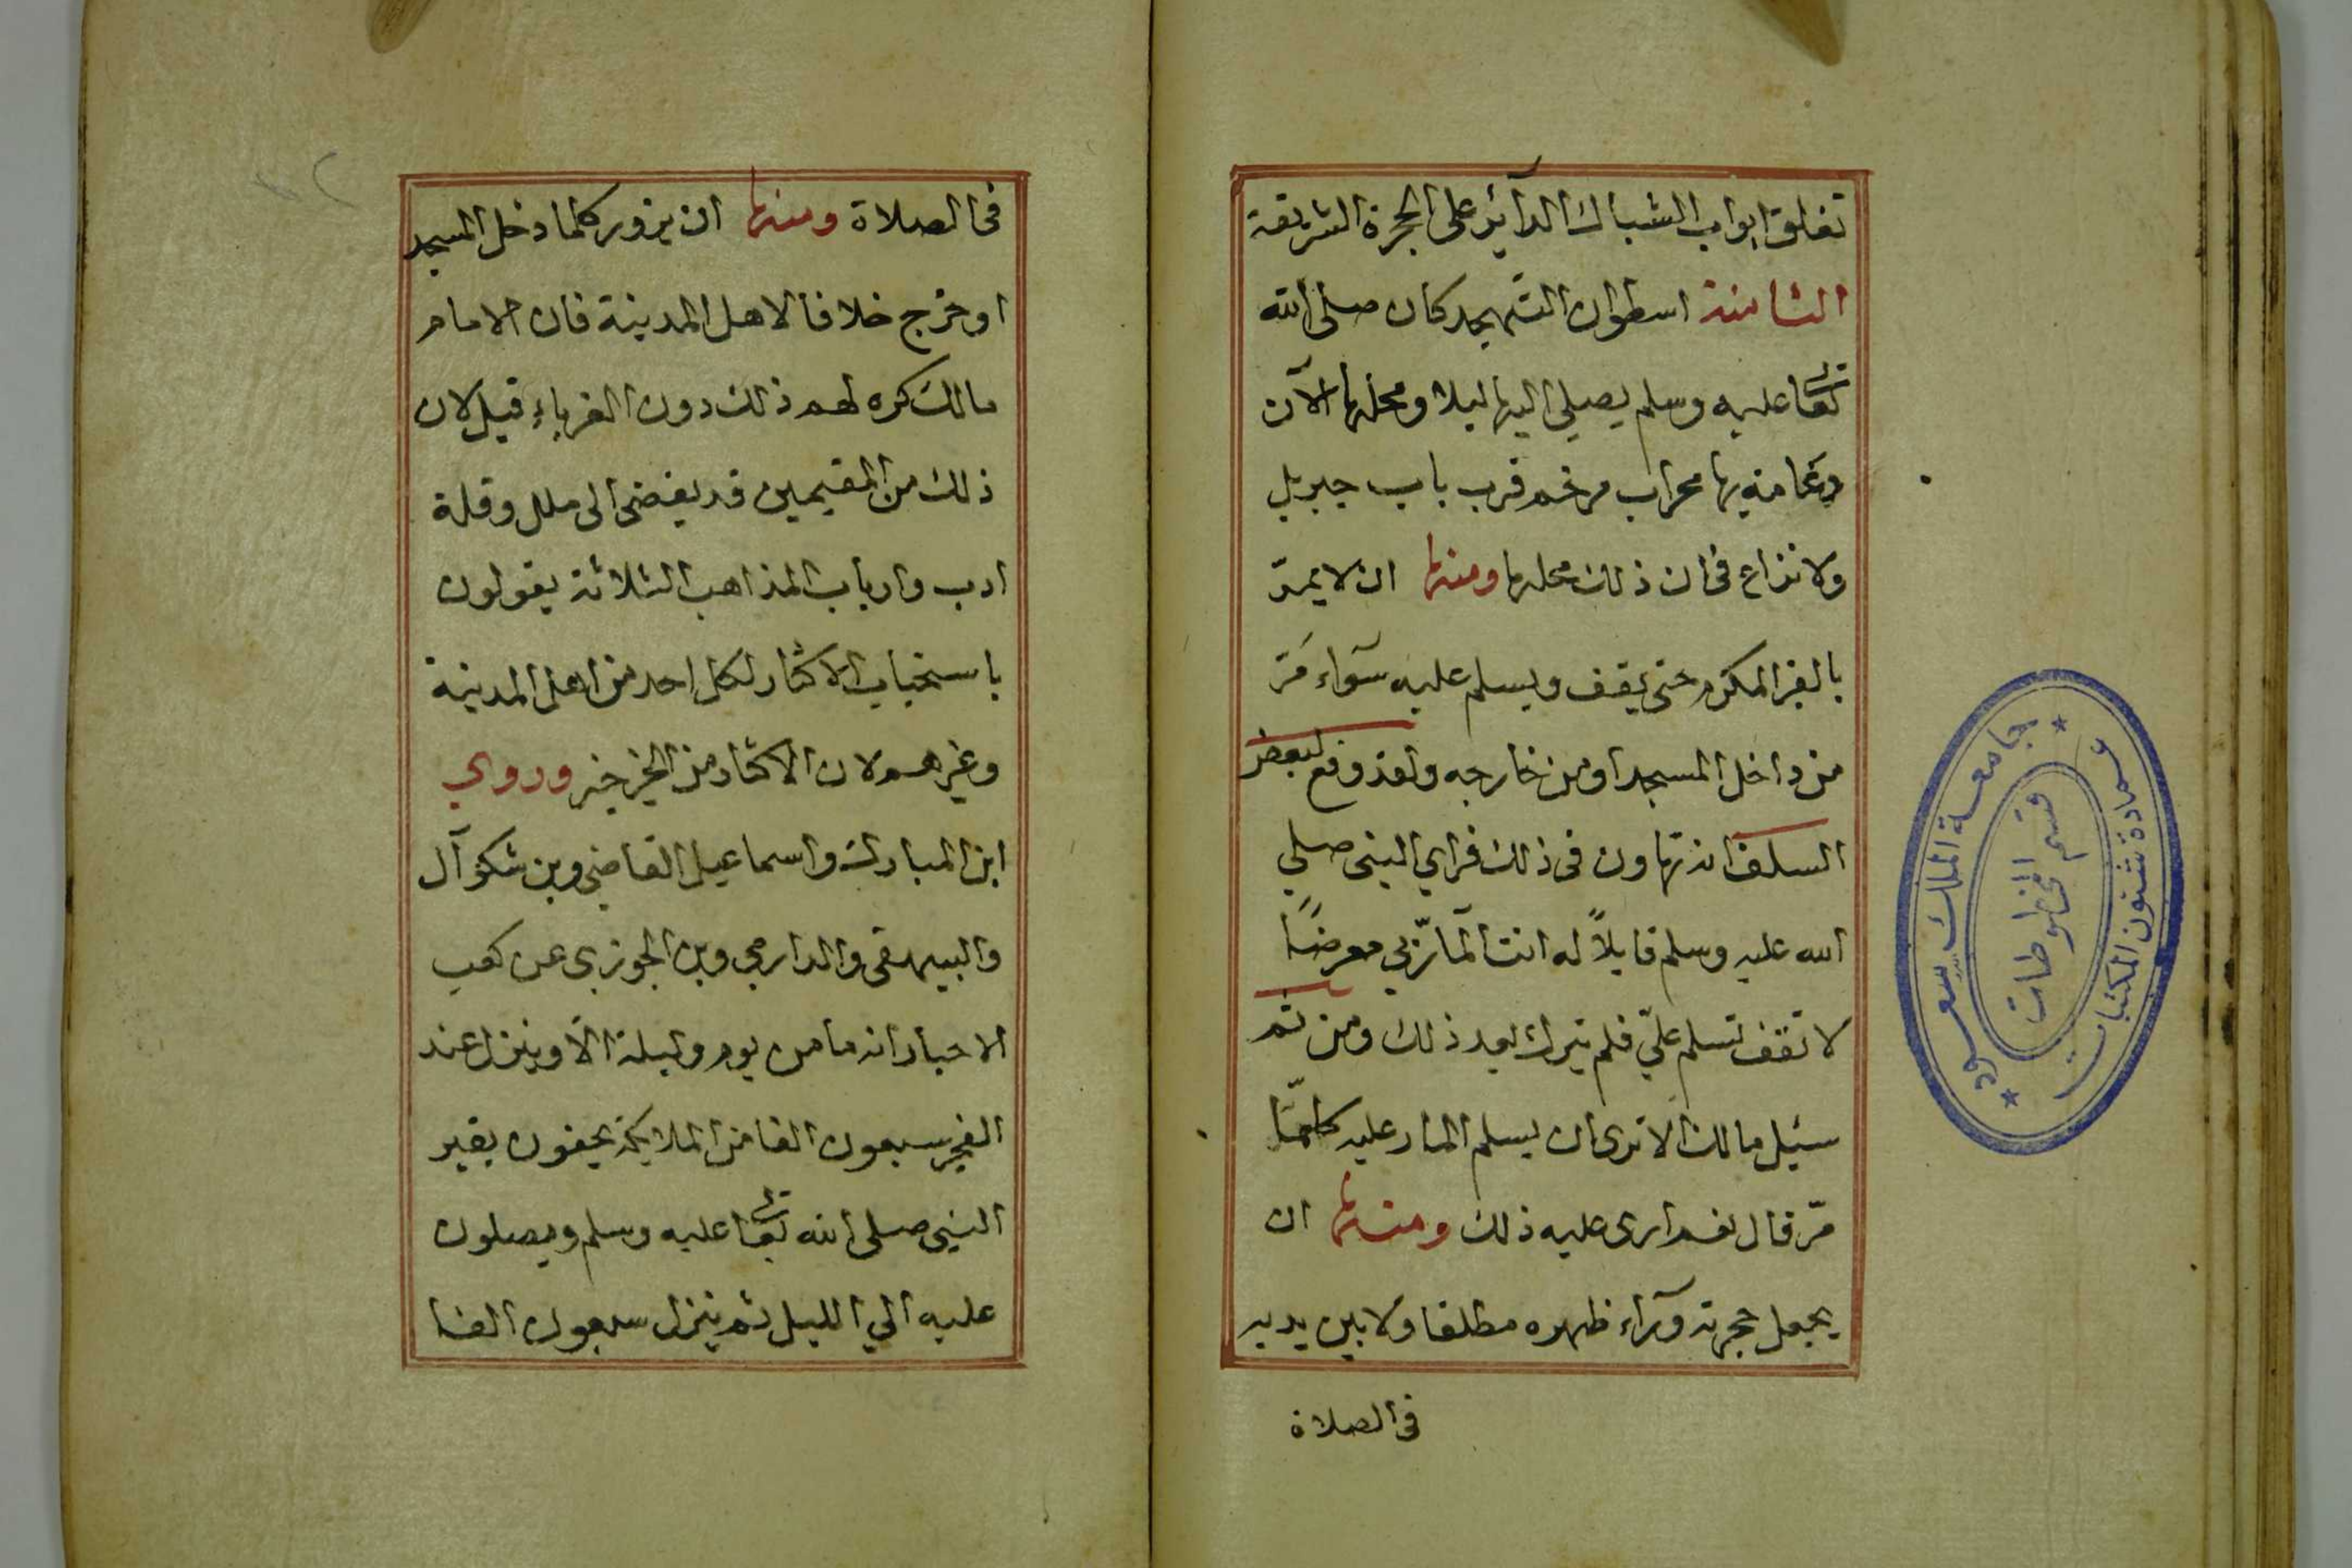 تغلق ابواب الشباك الدآئر على الحجرة الشريفة
الثامنة اسطوان التهجد كان صلى الله
تعالى عليه وسلم يصلي اليها ليلا ومحلها الآن
دعامة بها محراب مرخم قرب باب جبريل
ولا نزاع في ان ذلك محلها ومنها ان لا يمرّ
بالقبر المكرم حتى يقف ويسلم عليه سوآء مَرّ
من داخل المسجد او من خارجه ولقد وقع لبعض
السلف انه تهاون في ذلك فراي النبي صلي
الله عليه وسلم قايلاً له انت المآرّ بي معرضًا
لا تقف تسلم عليّ فلم يترك بعد ذلك ومن ثم
سئيل مالك الا ترى ان يسلم المار عليه كلمّا
مرّ قال نعم ارى عليه ذلك ومنها ان
يجعل حجرته ورآء ظهره مطلقا ولا بين يديه
في الصلاة
في الصلاة ومنها ان يزور كلما دخل المسجد
او خرج خلافا لاهل المدينة فان الامام
مالك كره لهم ذلك دون الغرباء قيل لان
ذلك من المقيمين قد يفضي الى ملل وقلة
ادب وارباب المذاهب الثلاثة يقولون
باستحباب الاكثار لكل احد من اهل المدينة
وغيرهم لان الاكثار من الخير خير وروي
ابن المبارك واسماعيل القاضي وبن شكوآل
والبيهقي والدارمي وبن الجوزي عن كعب
الاحبار انه ما من يوم وليلة الّا وينزل عند
الفجر سبعون الفا من الملايكة يحفون بقبر
النبي صلى الله تعالى عليه وسلم ويصلون
عليه الي الليل ثم ينزل سبعون الفا
جامعة الملك سعود
عمادة شئون المكتبات
قسم المخطوطات